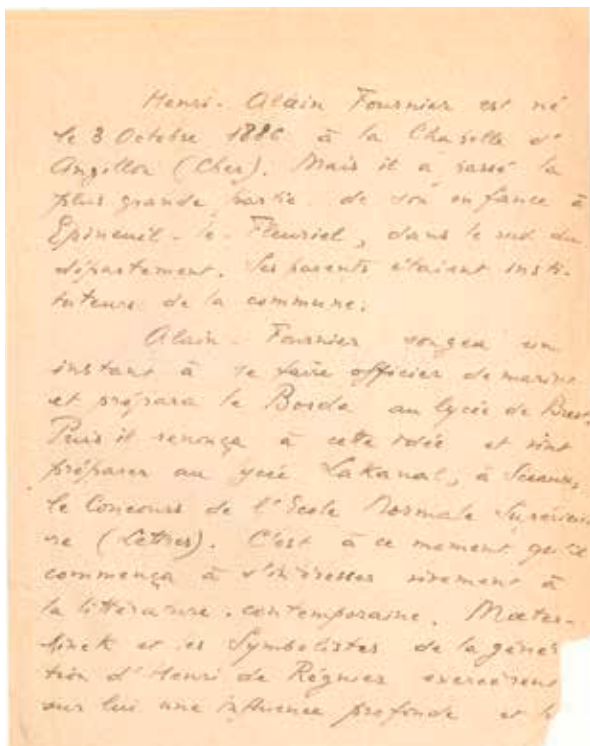 Henri-Alain Fournier est né
le 3 Octobre 1886 à la Chapelle d'
Angillon (Cher). Mais il a passé la
plus grande partie de son enfance à
Epineuil-le-Fleuriel, dans le sud du
département. Ses parents étaient insti-
tuteurs de la commune.
Alain-Fournier songea un
instant à se faire officier de marine
et prépara le Borda au lycée de Brest.
Puis il renonça à cette idée et vint
préparer au ycée Lakanal, à Sceaux,
le Concours de l'Ecole Normale Supérieu-
re (Lettres). C'est à ce moment qu'il
commença à s'intéresser vivement à
la littérature contemporaine. Mæter-
linck et les Symbolistes de la généra
tion d'Henri de Régnier exercèrent
sur lui une influence profonde et